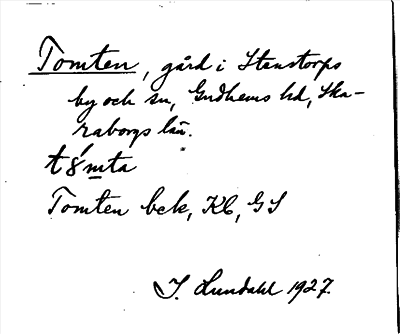 Tomten, gård i Stenstorps
by och sn, Gudhems hd, Ska-
raborgs län.
Tomten bek, Kb, GS
I. Lundahl 1927.